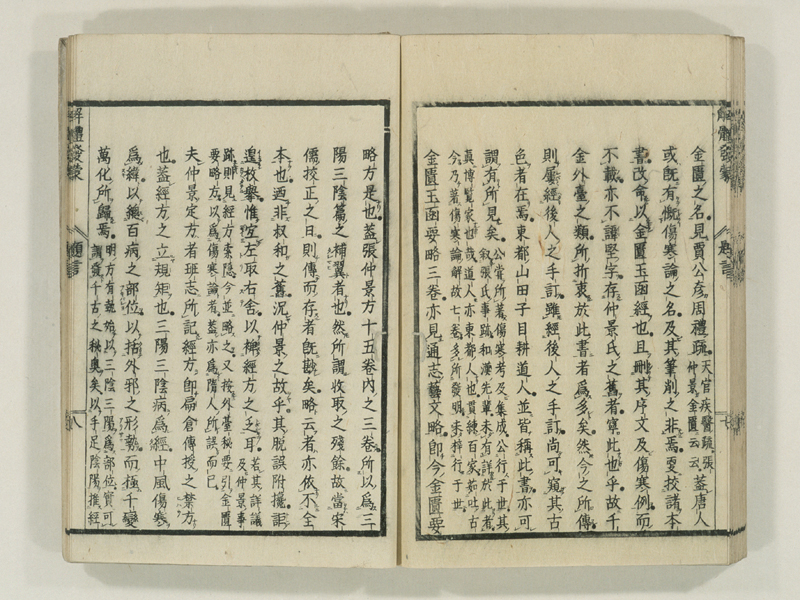 金匱之名見賈公彦周禮疏天官疾醫疏張仲景金匱云云蓋唐人
或既有慨傷寒論之名及其筆削之非焉更校諸本
書改命以金匱玉函經也且刪其序文及傷寒例而
不載亦不諱堅字存仲景氏之舊者寔此也乎故千
金外臺之類所折衷於此書者爲多矣然今之所傳
則屬經後人之手訂雖經後人之手訂尚可窺其古
色者在焉東都山田子目耕道人並皆稱此書亦可
謂有所見矣公嘗所著傷寒考及集成公行于世其
叙張氏事跡和漢先輩未有詳於此者
真博覽家也哉道人亦東都人也貫練百家茹吐古
今乃著傷寒論解故七卷多所發明未梓行于世
金匱玉函要略三卷亦見通志藝文略即今金匱要
略方是也蓋張仲景方十五卷内之三卷所以爲三
陽三陰篇之補翼者也然所謂收取之殘餘故當宋
儒校正之日則傳而存者既尠矣略云者亦依不全
本也迺非叔和之舊況仲景之故乎其脱誤附攙詎
遑枚舉惟宜左取右舍以稱經方之乏耳若其詳議及仲景事
跡則見經方索隐今並略之又按外臺秘要引金匱
要略方以爲傷寒論者蓋亦爲隋人所誤而已
夫仲景定方者班志所記經方即扁倉傳授之禁方
也蓋經方之立規矩也三陽三陰病爲經中風傷寒
爲緯以統百病之部位以括外邪之形勢而極千變
萬化所歸焉明方有執始以三陰三陽爲部位實可
謂發千古之秘奧矣以手足陰陽推經
解體發蒙
題言
八